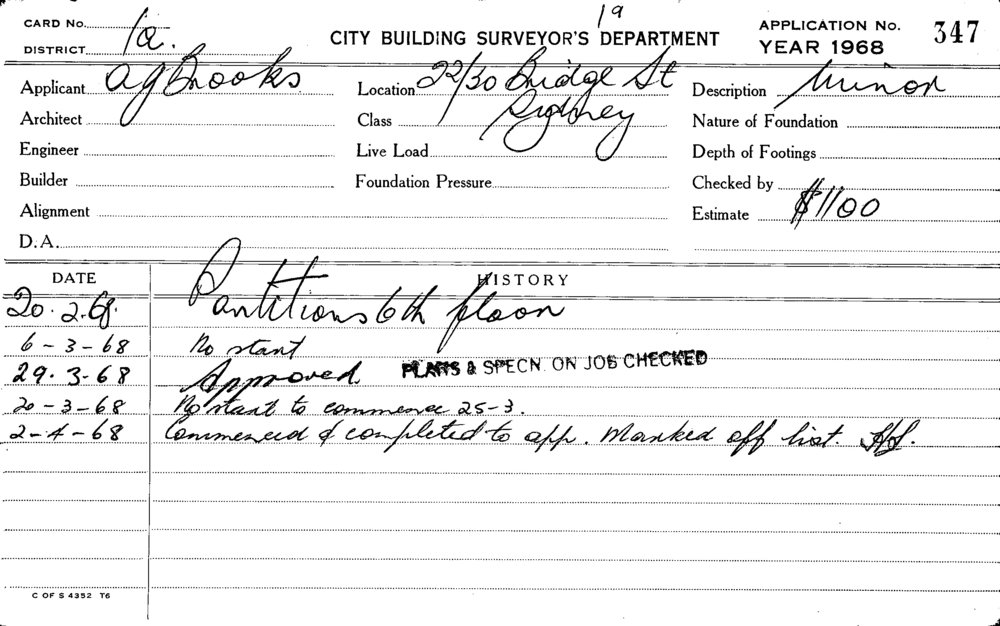 19
CARD No. 1a.
DISTRICT
CITY BUILDING SURVEYOR'S DEPARTMENT
APPLICATION No. 347
YEAR 1968
Applicant A G Brooks
Location 22/30 Bridge St
Sydney
Description Minor
Architect
Class
Nature of Foundation
Engineer
Live Load
Depth of Footings
Builder
Foundation Pressure
Checked by
Alignment
Estimate $1100
D.A.
DATE HISTORY
20.2.68. Partitions 6th floor
6-3-68 No start
29.3.68 Approved PLANS & SPECN. ON JOB CHECKED
20-3-68 No start to commence 25-3.
2-4-68 Commenced & completed to app. Marked off list.
C OF S 4352 T6